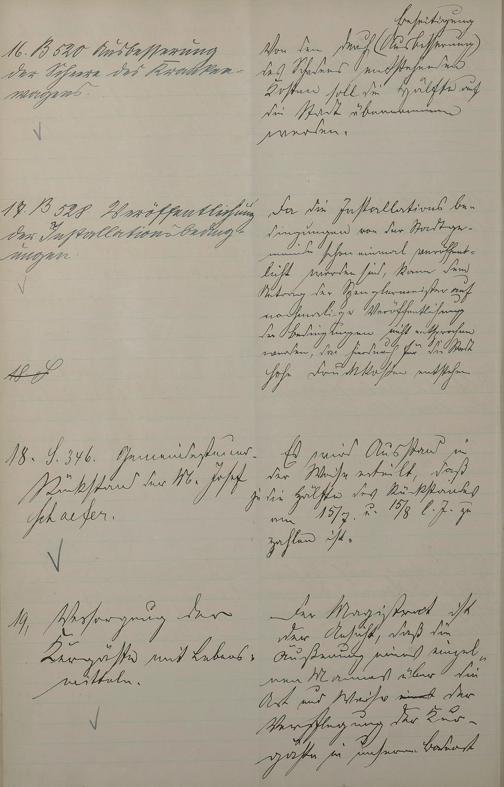 16. B 520 Ausbesserung
der Schere des Kranken-
wagens.
Beseitigung
Von den durch (Ausbesserung)
des Schadens entstehenden
Kosten soll die Hälfte auf
die Stadt übernommen
werden.
17. B 528 Veröffentlichung
der Installationsbeding-
ungen.
Da die Installationsbe-
dingungen von der Stadtge-
meinde schon einmal veröffent-
licht worden sind, kann dem
Antrag der Spenglermeister auf
nochmalige Veröffentlichung
der Bedingungen nicht entsprochen
werden, da hierdurch für die Stadt
hohe Druckkosten entstehen
18. S. 346. Gemeindesteuer-
Rückstand der Josef
Schaefer.
Es wird Ausstand in
der Weise erteilt, daß
je die Hälfte des Rückstandes
am 15/7. u. 15/8 l. J. zu
zahlen ist.
19, Versorgung der
Kurgäste mit Lebens-
mitteln.
Der Magistrat ist
der Ansicht, daß die
Äußerung eines einzel-
nen Mannes über die
Art und Weise der
Verpflegung der Kur-
gäste in unserm Badeort